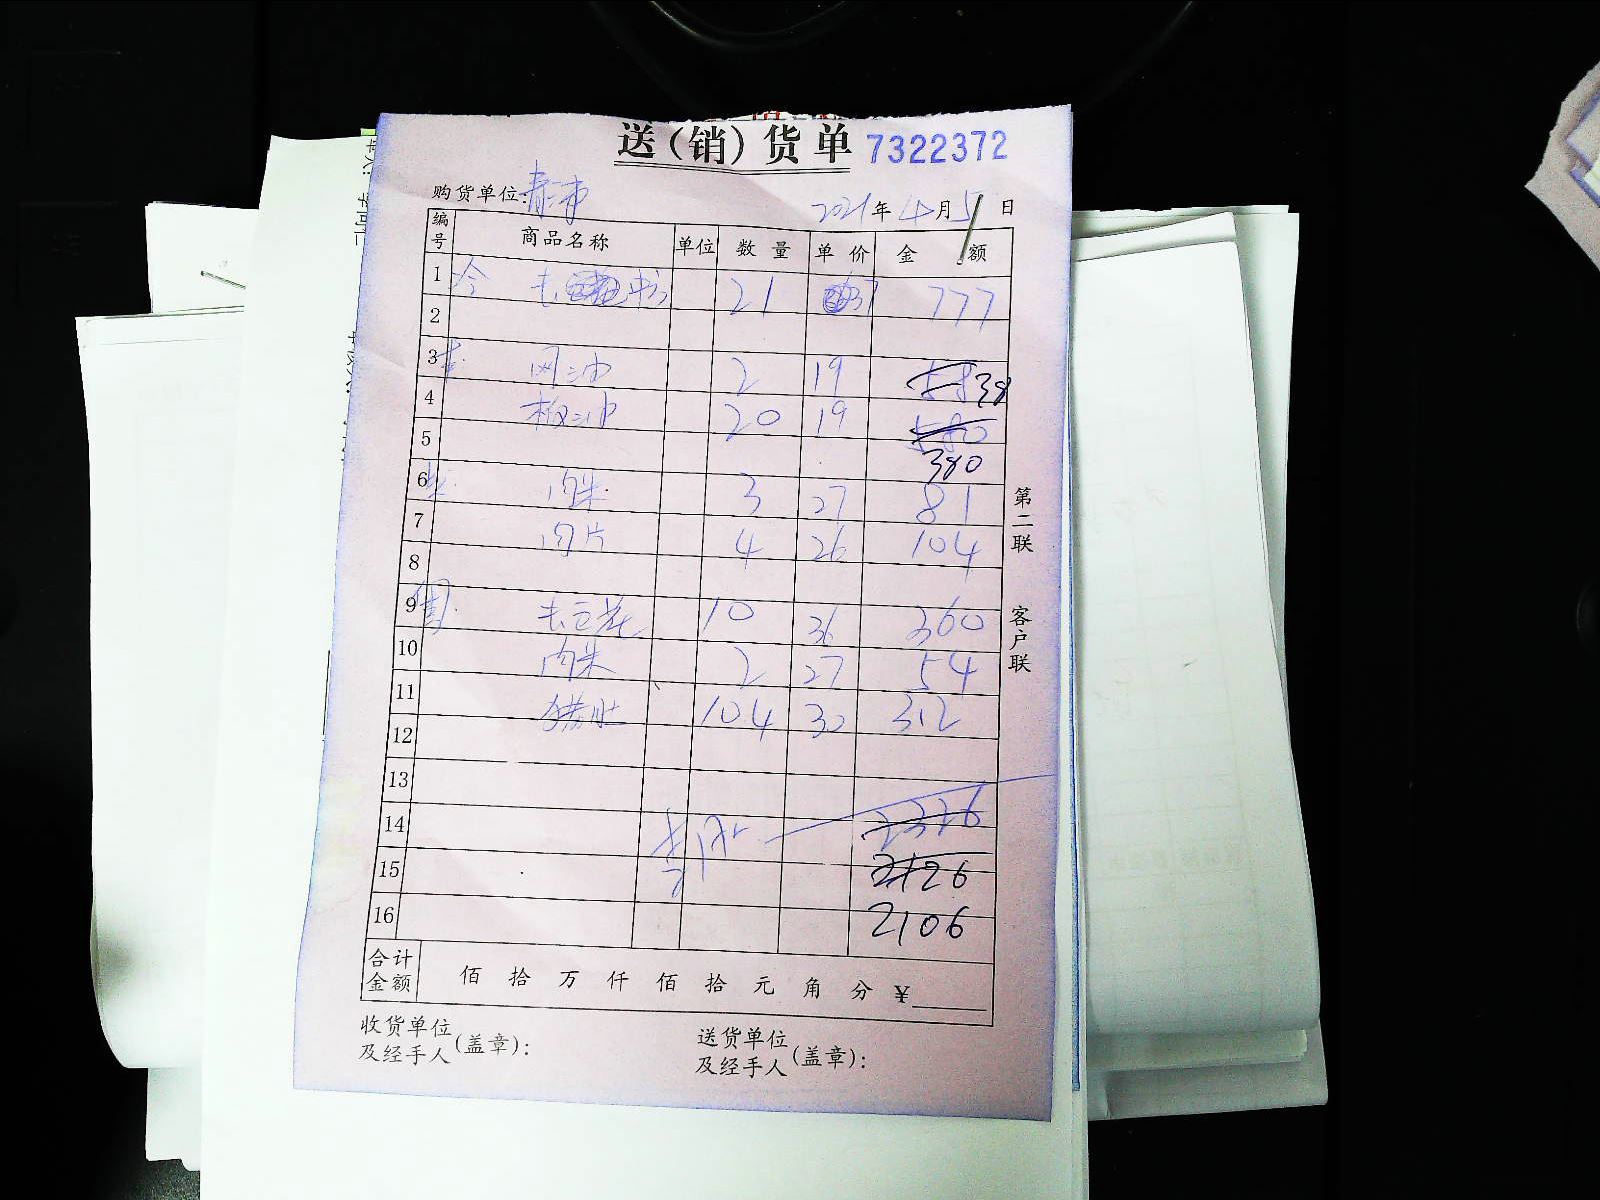 送(销)货单 7322372
购货单位: 2021年4月5日
编号 商品名称 单位 数量 单价 金额
1 21 37 777
2
3 网油 2 19 58 38
4 板油 20 19 580
5 380
6 肉朱 3 27 81
7 肉片 4 26 104
8
9 去豆花 10 36 360
10 肉朱 2 27 54
11 猪肚 104 30 312
12
13
14 2326
15 2126
16 2106
合计金额 佰 拾 万 仟 佰 拾 元 角 分 ¥
收货单位及经手人(盖章): 送货单位及经手人(盖章):
第二联 客户联